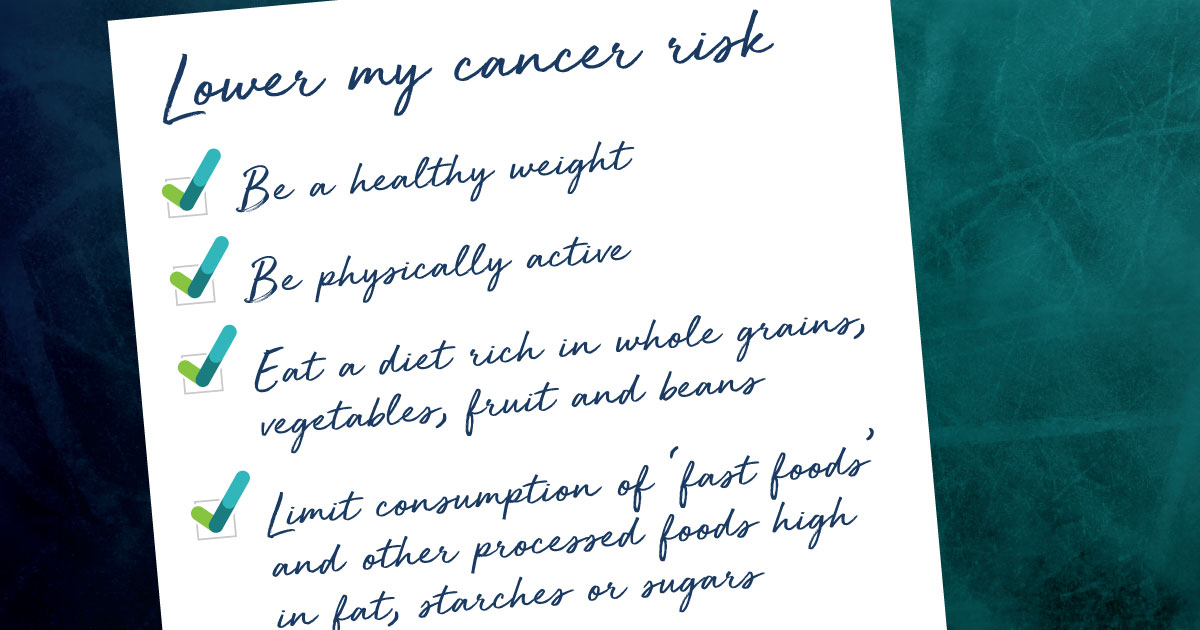 Lower my cancer risk
Be a healthy weight
Be physically active
Eat a diet rich in whole grains,
vegetables, fruit and beans
Limit consumption of ‘fast foods’
and other processed foods high
in fat, starches or sugars